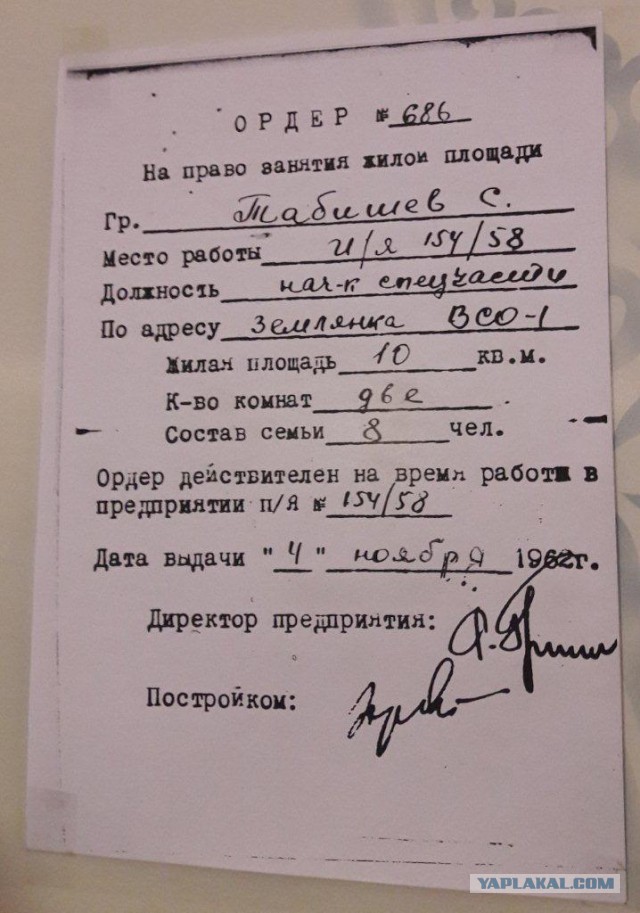 ОРДЕР № 686
На право занятия жилой площади
Гр. Табишев С.
Место работы И/я 154/58
Должность нач-к спецчасти
По адресу Землянка ВСО-1
Жилая площадь 10 кв.м.
К-во комнат две .
Состав семьи 8 чел.
Ордер действителен на время работы в
предприятии П/Я № 154/58
Дата выдачи "4" ноября 1962г.
Директор предприятия:
Постройком:
YAPLAKAL.COM